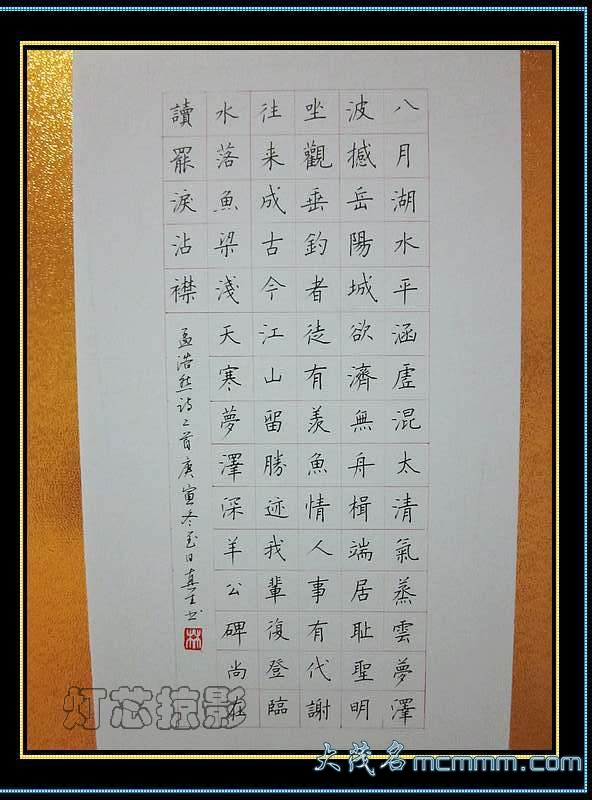 八月湖水平涵虛混太清氣蒸雲夢澤
波撼岳陽城欲濟無舟楫端居耻聖明
坐觀垂釣者徒有羨魚情人事有代謝
往来成古今江山留勝迹我輩復登臨
水落魚梁淺天寒夢澤深羊公碑尚在
讀罷淚沾襟
孟浩然诗二首庚寅冬至日真书
林
灯芯掠影
大茂名mcmmm.com